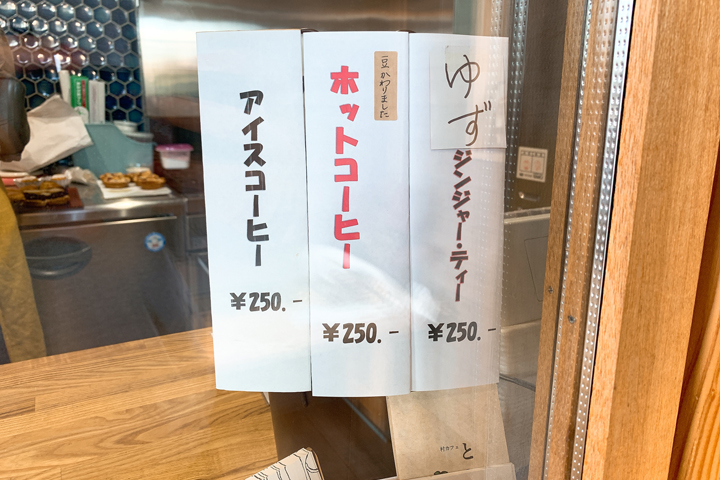 アイスコーヒー
¥250.-
豆かわりました
ホットコーヒー
¥250.-
ゆず
ジンジャー・ティー
¥250.-
村カフェ
と